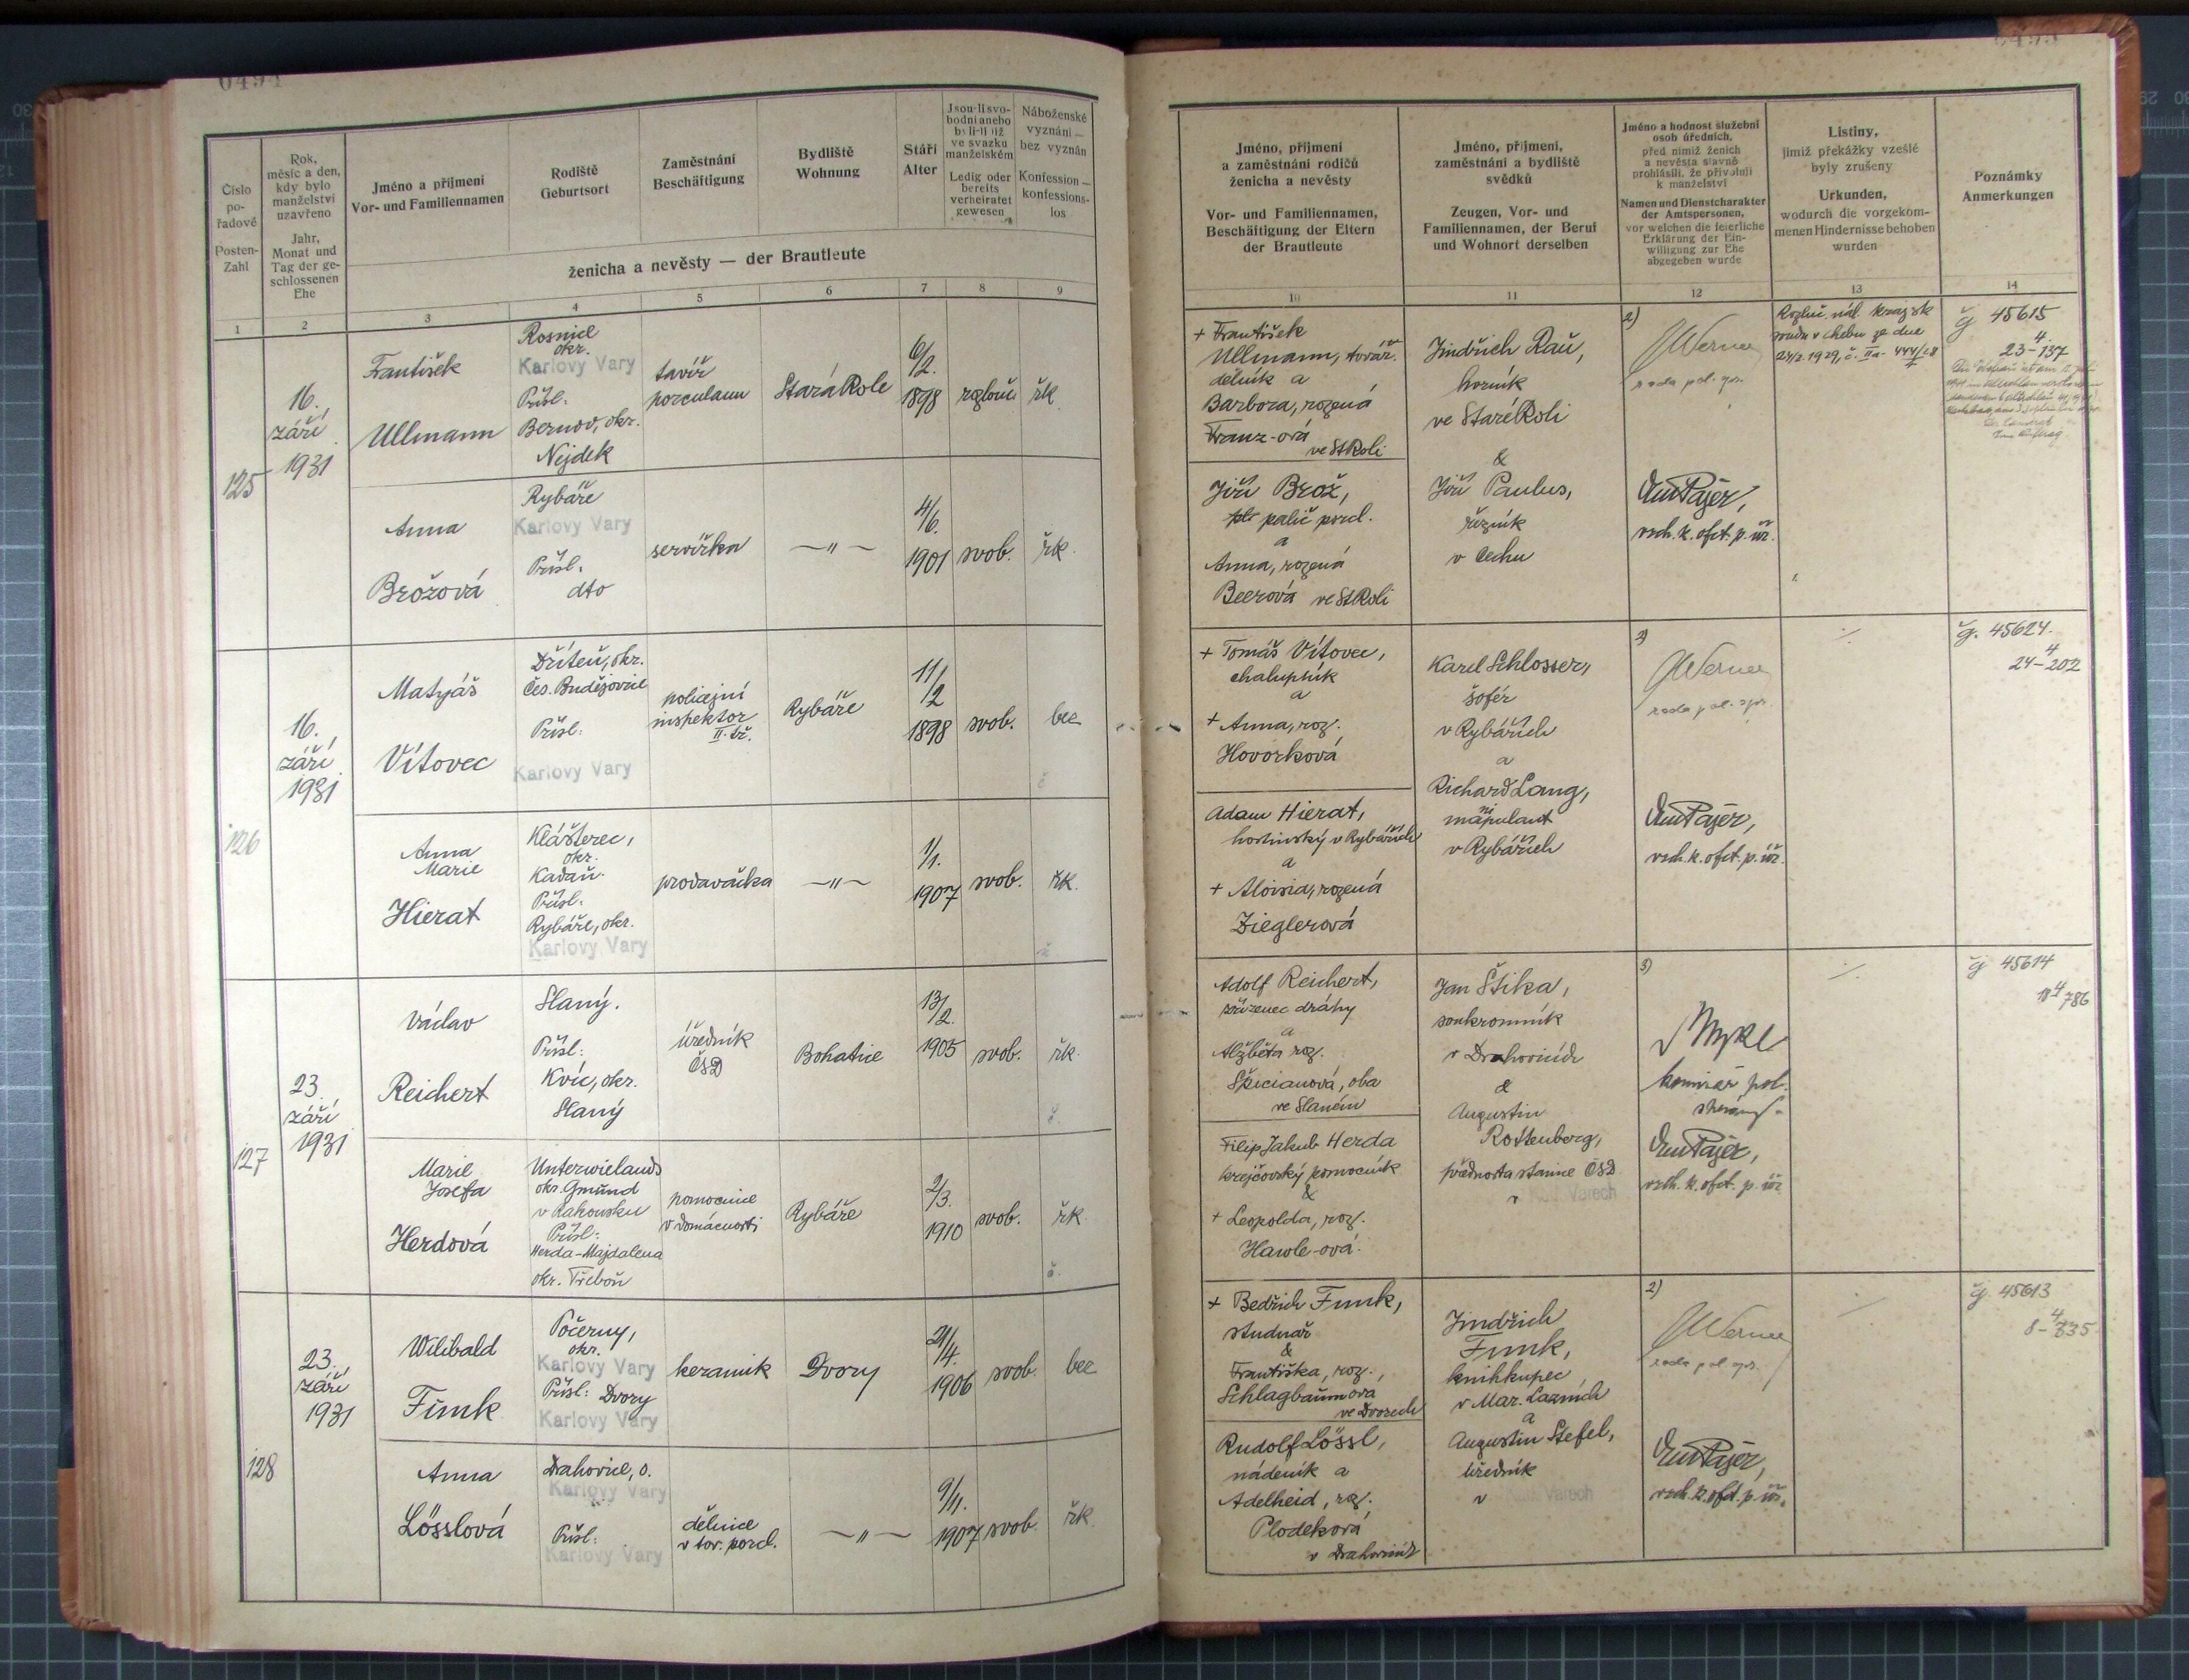 0494
Číslo
po-
řadové
Posten-
Zahl
Rok,
měsíc a den,
kdy bylo
manželství
uzavřeno
Jahr,
Monat und
Tag der ge-
schlossenen
Ehe
Jméno a příjmení
Vor- und Familiennamen
Rodiště
Geburtsort
Zaměstnání
Beschäftigung
Bydliště
Wohnung
Stáří
Alter
Jsou-li svo-
bodni anebo
byli-li již
ve svazku
manželském
Ledig oder
bereits
verheiratet
gewesen
Náboženské
vyznání —
bez vyznán
Konfession —
konfessions-
los
ženicha a nevěsty — der Brautleute
1 2 3 4 5 6 7 8 9
125
16.
září
1931
František
Ullmann
Rosnice
okr.
Karlovy Vary
Přísl.
Bernov, okr.
Nejdek
tavíř
porculanu
Stará Role
6/2.
1898
rozlouč
řk
Anna
Brožová
Rybáře
Karlovy Vary
Přísl.
dto
servírka
—"—
4/6.
1901
svob.
řk.
126
16.
září
1931
Matyáš
Vítovec
Dříteň, okr.
Čes. Budějovice
Přísl.
Karlovy Vary
policejní
inspektor
II. tř.
Rybáře
11/2
1898
svob.
bez
Anna
Marie
Hierat
Klášterec,
okr.
Kadaň.
Přísl.
Rybáře, okr.
Karlovy Vary
prodavačka
—"—
1/1.
1907
svob.
řk.
127
23.
září
1931
Václav
Reichert
Slaný.
Přísl:
Kvíc, okr.
Slaný
úředník
ČSD
Bohatice
13/2.
1905
svob.
řk.
Marie
Josefa
Herdová
Unterwielands
okr. Gmünd
v Rakousku
Přísl:
Herda-Majdalena
okr. Třeboň
pomocnice
v domácnosti
Rybáře
2/3.
1910
svob.
řk.
128
23.
září
1931
Wilibald
Funk
Počerny,
okr.
Karlovy Vary
Přísl: Dvory
Karlovy Vary
keramik
Dvory
21/4.
1906
svob
bez
Anna
Lösslová
Drahovice, o.
Karlovy Vary
Přísl:
Karlovy Vary
dělnice
v tov. porcl.
—"—
9/11.
1907
svob.
řk.
Jméno, příjmení
a zaměstnání rodičů
ženicha a nevěsty
Vor- und Familiennamen,
Beschäftigung der Eltern
der Brautleute
Jméno, příjmení,
zaměstnání a bydliště
svědků
Zeugen, Vor- und
Familiennamen, der Beruf
und Wohnort derselben
Jméno a hodnost služební
osob úředních,
před nimiž ženich
a nevěsta slavně
prohlásili, že přivolují
k manželství
Namen und Dienstcharakter
der Amtspersonen,
vor welchen die feierliche
Erklärung der Ein-
willigung zur Ehe
abgegeben wurde
Listiny,
jimiž překážky vzešlé
byly zrušeny
Urkunden,
wodurch die vorgekom-
menen Hindernisse behoben
wurden
Poznámky
Anmerkungen
10 11 12 13 14
+ František
Ullmann, továr.
dělník a
Barbora, rozená
Franz-ová
ve St Roli
Jindřich Rau,
horník
ve Staré Roli
&
2)
Werner
rada pol. spr.
Rozluč. nál. krajsk
soudu v Chebu ze dne
čj 45615
4
23-137
Jiří Brož,
palič porcl.
a
Anna, rozená
Beerová ve St Roli
Jiří Paulus,
řezník
v Cechu
Em Pajer,
vrch. k. ofct. p. úř.
+ Tomáš Vítovec,
chalupník
a
+ Anna, roz.
Hovorková
Karel Schlosser,
šofér
v Rybářích
a
Richard Lang,
manipulant
v Rybářích
2)
Werner
rada pol. spr.
čj. 45624.
4
24-202
Adam Hierat,
hostinský v Rybářích
a
+ Aloisia, rozená
Zieglerová
Em Pajer,
vrch. k. ofct. p. úř.
Adolf Reichert,
zřízenec dráhy
a
Alžběta roz.
Špicianová, oba
ve Slaném
Jan Štika,
soukromník
v Drahovicích
&
Augustin
Rottenberg,
přednosta stanice ČSD
v Karl. Varech
3)
komisař pol.
čj 45614
18 4 786
Filip Jakub Herda
krejčovský pomocník
&
+ Leopolda, roz.
Hawle-ová.
Em Pajer,
vrch. k. ofct. p. úř
+ Bedřich Funk,
studnař
&
Františka, roz.,
Schlagbaumova
ve Dvorech
Jindřich
Funk,
knihkupec
v Mar. Lazních
a
Augustin Stefel,
úředník
v Karl. Varech
2)
Werner
rada pol. spr.
čj. 45613
4
8-835
Rudolf Lössl,
nádeník a
Adelheid, roz.
Plodeková
v Drahovicích
Em Pajer,
vrch. k. ofct. p. úř.